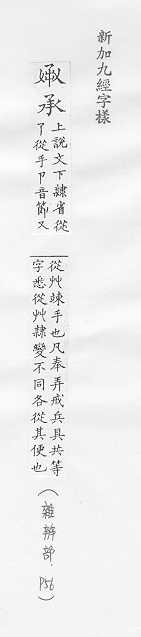 新加九經字樣
承
上說文下隸省從
了從手卩音節又
從艸竦手也凡奉弄戒兵具共等
字悉從艸隸變不同各從其便也
(雜辨部.P56)